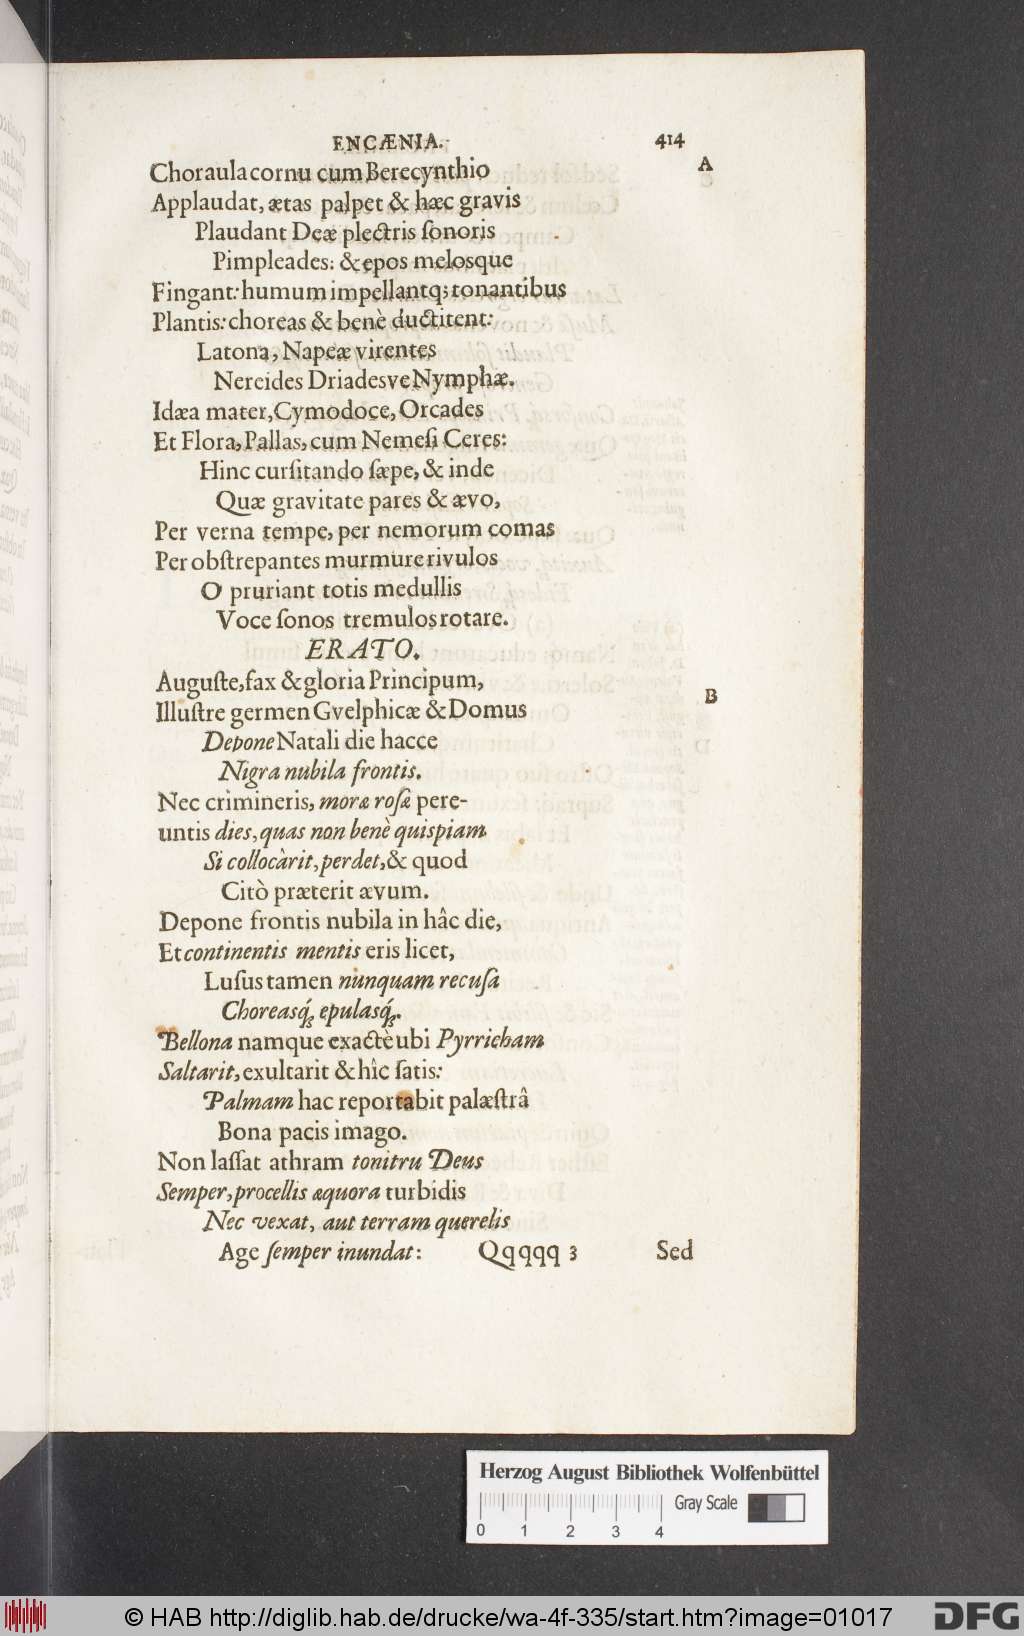 ENCÆNIA. 414
Choraula cornu cum Berecynthio A
Applaudat, ætas palpet & hæc gravis
Plaudant Deæ plectris ſonoris
Pimpleades: & epos melosque
Fingant: humum impellantq; tonantibus
Plantis: choreas & benè ductitent:
Latona, Napeæ virentes
Nereides Driadesve Nymphæ.
Idæa mater, Cymodoce, Orcades
Et Flora, Pallas, cum Nemeſi Ceres:
Hinc curſitando ſæpe, & inde
Quæ gravitate pares & ævo,
Per verna tempe, per nemorum comas
Per obſtrepantes murmure rivulos
O pruriant totis medullis
Voce ſonos tremulos rotare.
ERATO.
Auguſte, fax & gloria Principum,
Illuſtre germen Gvelphicæ & Domus B
Depone Natali die hacce
Nigra nubila frontis.
Nec crimineris, moræ roſæ pere-
untis dies, quas non benè quispiam
Si collocàrit, perdet, & quod
Citò præterit ævum.
Depone frontis nubila in hâc die,
Et continentis mentis eris licet,
Luſus tamen nunquam recuſa
Choreasq́; epulasq́;.
Bellona namque exactè ubi Pyrricham
Saltarit, exultarit & hîc ſatis:
Palmam hac reportabit palæſtrâ
Bona pacis imago.
Non laſſat athram tonitru Deus
Semper, procellis æquora turbidis
Nec vexat, aut terram querelis
Age ſemper inundat: Qqqqq 3 Sed
Herzog August Bibliothek Wolfenbüttel
Gray Scale
0 1 2 3 4
© HAB http://diglib.hab.de/drucke/wa-4f-335/start.htm?image=01017 DFG